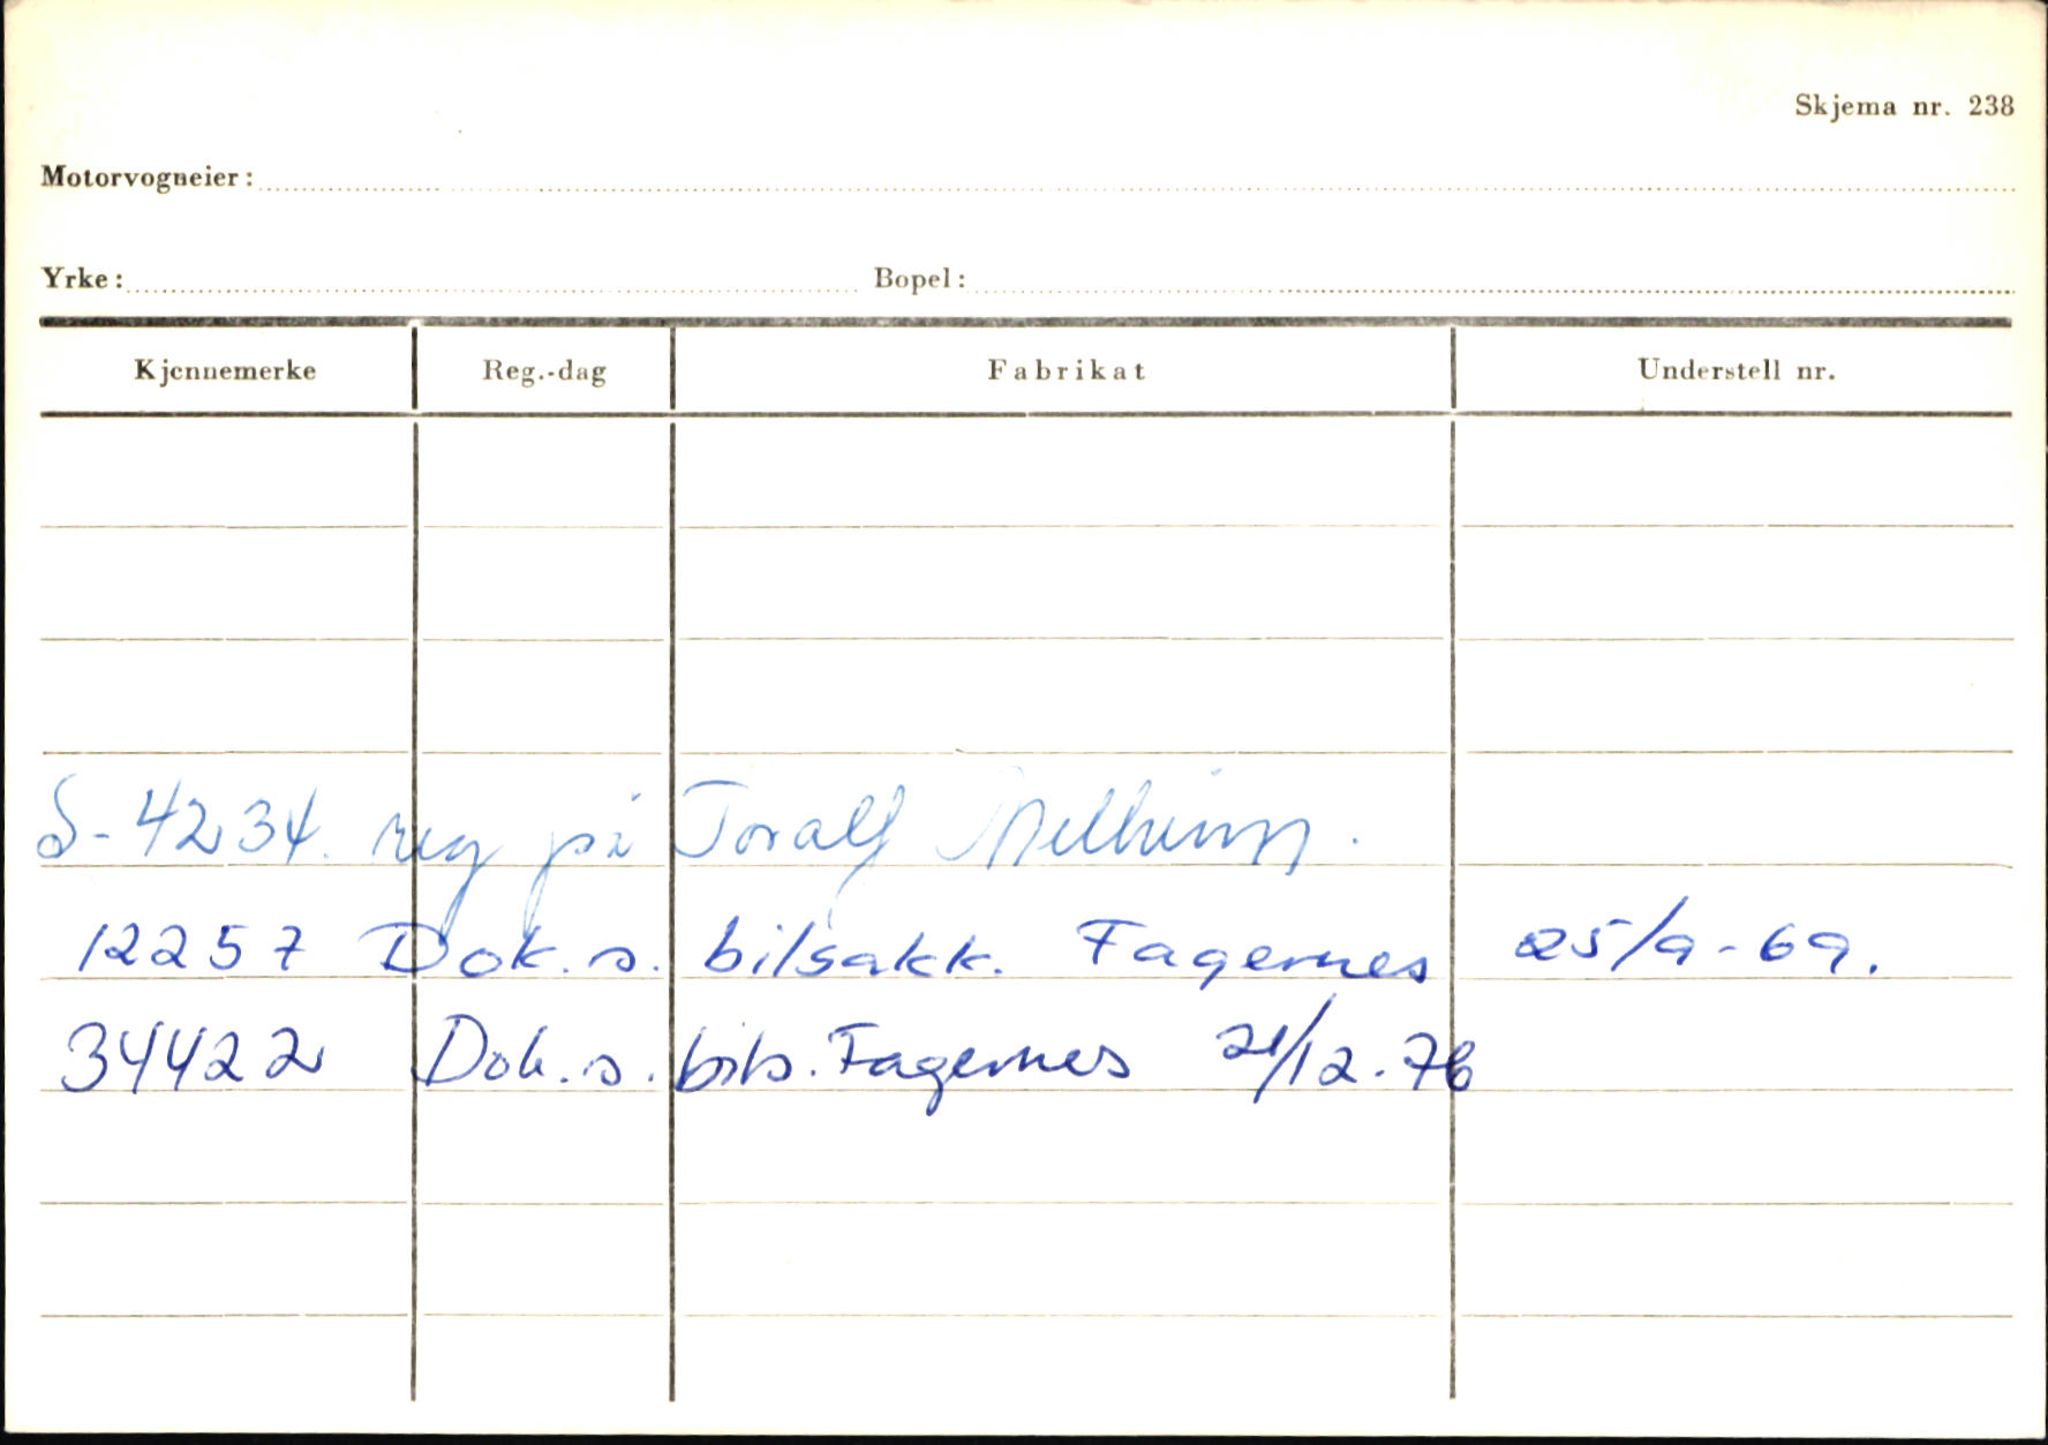 Skjema nr. 238
Motorvogneier:
Yrke: Bopel:
Kjennemerke Reg.-dag Fabrikat Understell nr.
S-4234. reg på Toralf Melheim.
12257 Dok. s. bilsakk. Fagernes 25/9-69.
34422 Dok. s. bils. Fagernes 21/12.76